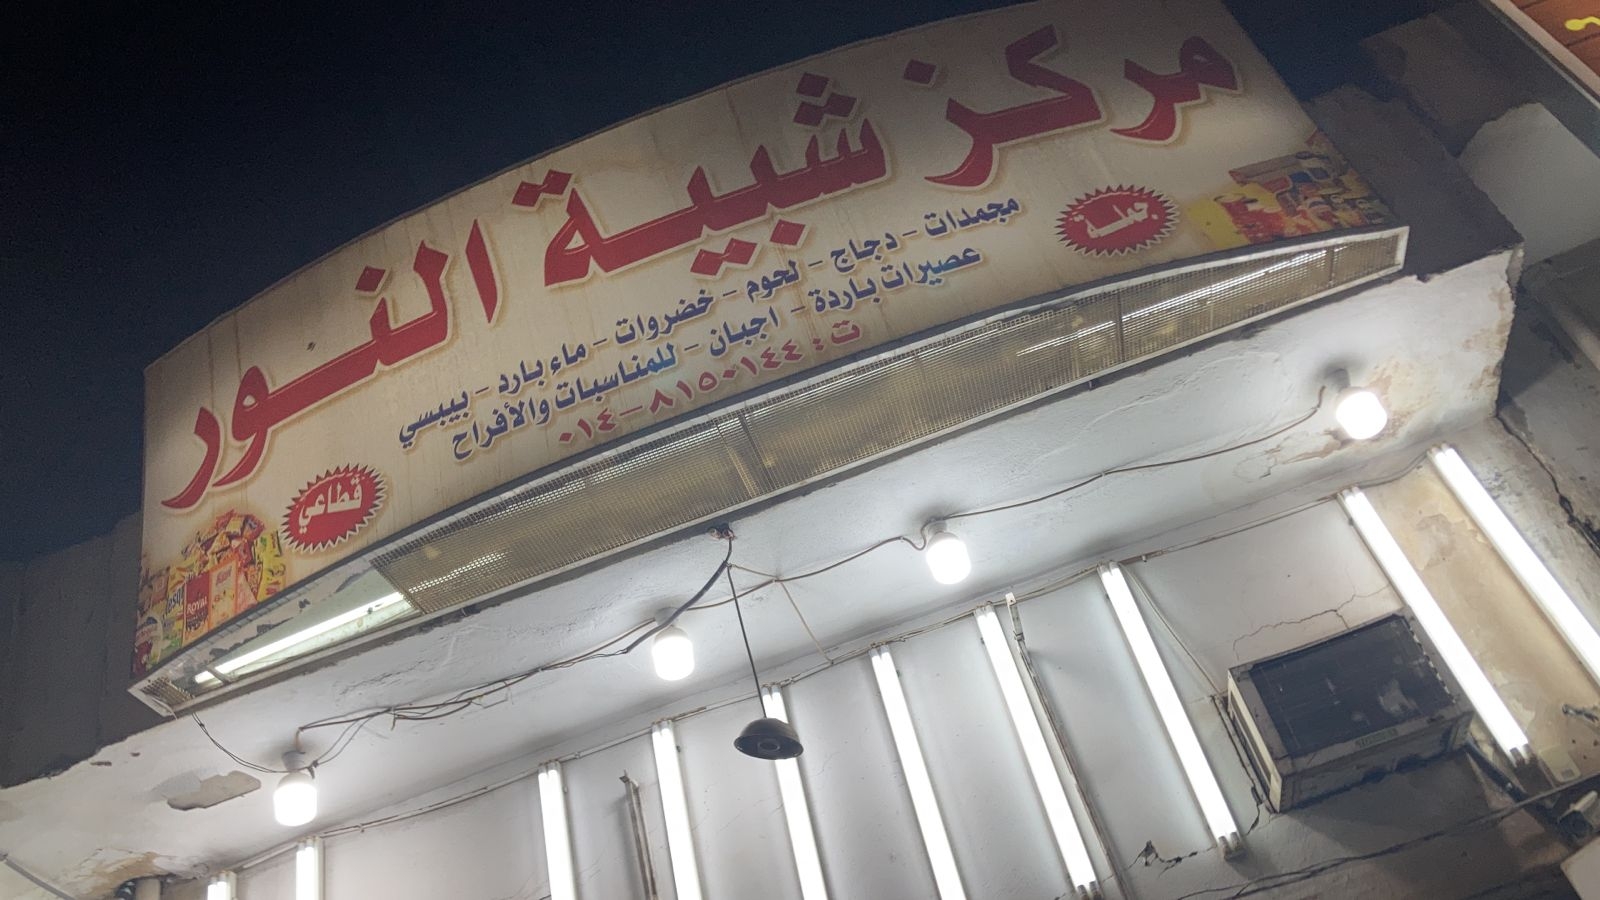 مركز شبية النور
جملة
مجمدات - دجاج - لحوم - خضروات - ماء بارد - بيبسي
عصيرات باردة - اجبان - للمناسبات والأفراح
ت : ٨١٥٠١٤٤ - ٠١٤
قطاعي
ROYAL